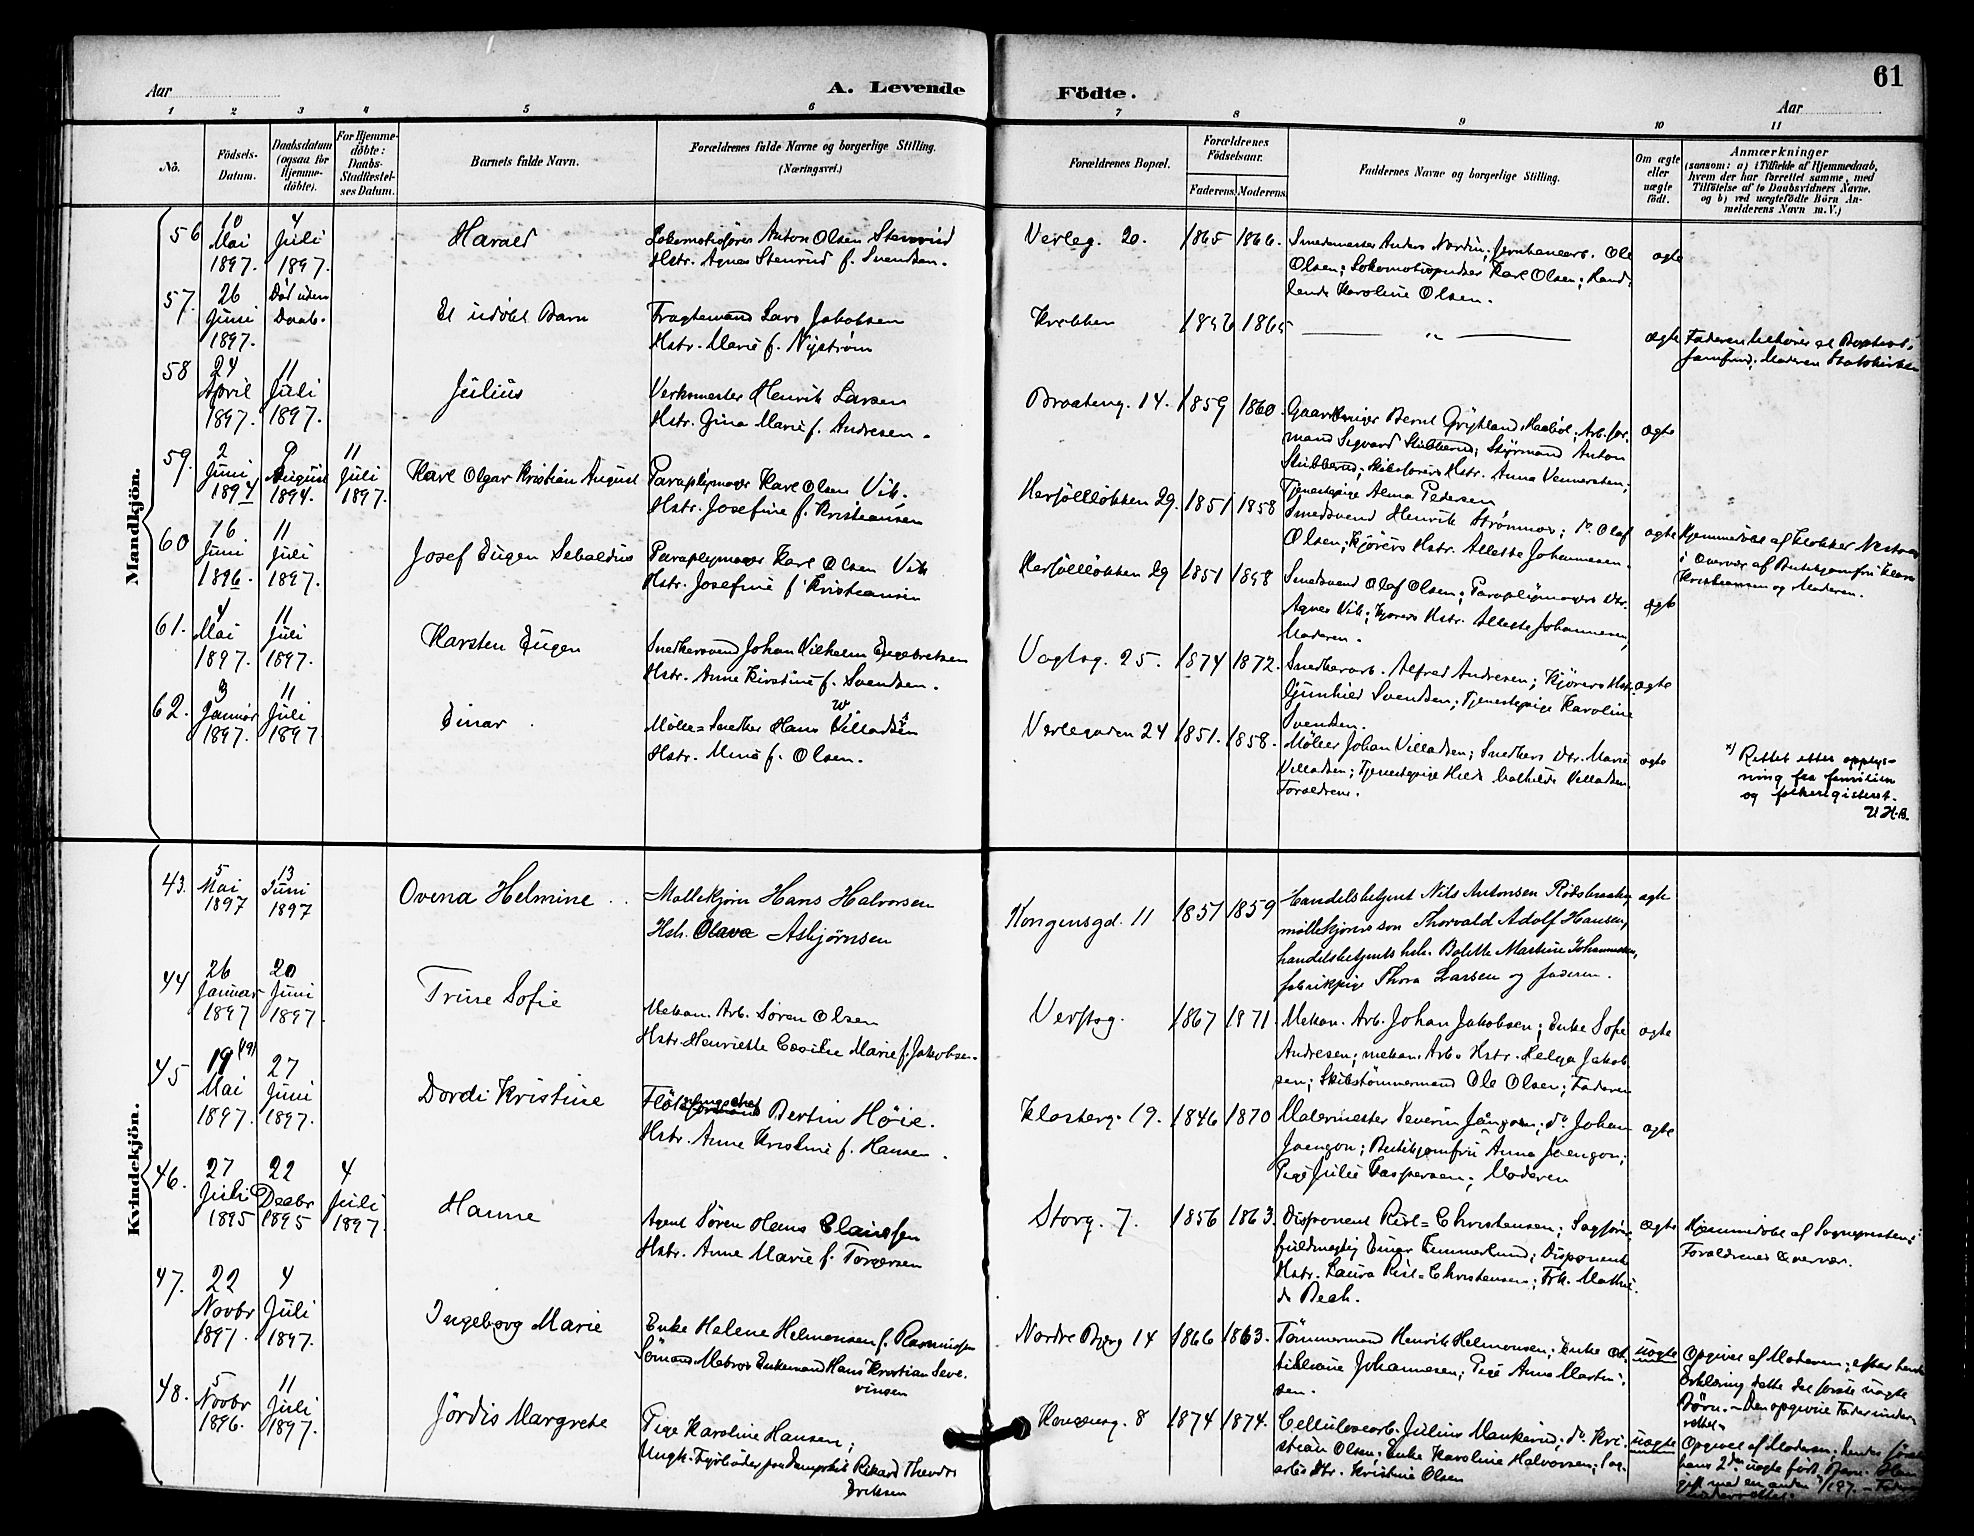 Aar
A. Levende
Födte.
61
Aar
1 2 3 4 5 6 7 8 9 10 11
No.
Födsels-
Datum.
Daabsdatum
(ogsaa for
Hjemme-
döbte).
For Hjemme-
döbte:
Daabs-
Stadfæstel-
ses Datum.
Barnets fulde Navn.
Forældrenes fulde Navne og borgerlige Stilling.
(Næringsvei.)
Forældrenes Bopæl.
Forældrenes
Födselsaar.
Faderens.
Moderens.
Faddernes Navne og borgerlige Stilling.
Om ægte
eller
uægte
födt.
Anmærkninger
(saasom: a) i Tilfælde af Hjemmedaab,
hvem der har forrettet samme, med
Tilföielse af to Daabsvidners Navne.
og b) ved uægtefödte Börn An-
melderens Navn m. V.)
Mandkjön.
56
10 Mai 1897.
4 Juli 1897.
Harald
Lokomotivfører Anton Olsen Stenrud
Hstr. Agnes Stenrud f. Svendsen.
Verkeg. 20.
1865 1866.
Smedmester Anders Nordin; Jernbanearb. Ole
Olsen; Lokomotivpudser Karl Olsen;
Karoline Olsen.
ægte
57.
26 Juni 1897.
Død uden Daab.
Et udøbt Barn
Fragtemand Lars Jakobsen
Hstr. Marie f. Nystrøm
Krabben
1865
— " —
ægte
Faderen tilhører et Baptist-
samfund, Moderen Statskirken
58
24 April 1897.
11 Juli 1897.
Julius
Verksmester Henrik Larsen
Hstr. Gina Marie f. Andresen.
Braateng. 14.
1859 1860.
Bernt; Arb.for-
mand Sigvard Stubberud; Styrmand Anton
Stubberud; Skibsførers Hstr. Anna Vennersten;
Tjenestepige Alma Pedersen
ægte
59.
2 Juni 1894
9 August 1894.
11 Juli 1897.
Karl Olgar Kristian August
Paraplymager Karl Olsen Vik.
Hstr. Josefine f. Kristiansen
Herføllløkken 29.
1851 1858
Smedsvend Henrik Strømmen; do Olaf
Olsen; Kjørers Hstr. Allette Johannesen.
ægte
Hjemmedøbt af Klokker
i Overvær af Butikjomfru Klara
Kristiansen og Moderen.
60
16 Juni 1896.
11 Juli 1897.
Josef Eugen Sebaldus
Paraplymager Karl Olsen Vik
Hstr. Josefine f Kristiansen
Herføllløkken 29
1851 1858
Smedsvend Olaf Olsen; Paraplymagers Dtr.
Agnes Vik; Kjørers Hstr. Allette Johannesen,
Moderen.
ægte
61.
4 Mai 1897.
11 Juli 1897.
Karsten Eugen
Snedkersvend Johan Vilhelm Engebretsen
Hstr. Anne Kirstine f. Svendsen.
Vogtsg. 25.
1874 1872.
Snedkerarb. Alfred Andresen; Kjørers Hstr.
Gunhild Svendsen; Tjenestepige Karoline
Svendsen.
ægte
62.
3 Januar 1897.
11 Juli 1897
Einar
Møller-Snedker Hans Villadsen
W
Hstr. Mina f. Olsen.
Verkegaden 24
1851. 1858.
Møller Johan Villadsen; Snedkers Dtr. Marie
Villadsen; Tjenestepige Hilda Villadsen.
Forældrene.
ægte
x) Rettet etter opplys-
ning fra familien
og folkeregisteret.
U.H.B.
Kvindekjön.
43.
5 Mai 1897
13 Juni 1897
Ovena Helmine
Møllekjører Hans Halvorsen
Hstr. Olava Asbjørnsen
Kongensgd. 11
1857 1859
Handelsbetjent Nils Antonsen Rødsbraaten
møllekjørers søn Thorvald Adolf Hansen,
handelsbetjents hstr. Bolette Martine Johannesen,
fabrikpige Thora Larsen og faderen.
ægte
44
26 Januar 1897
20 Juni 1897.
Trine Sofie
Mekan. Arb. Søren Olsen
Hstr. Henriette Cæcilie Marie f. Jakobsen.
Verftsg.
1867 1871.
Mekan. Arb. Johan Jakobsen; Enke Sofie
Andresen; mekan. Arb. Hstr. Helga Jakob-
sen; Skibstømmermand Ole Olsen; Faderen
ægte
45
19 (19) Mai 1897.
27 Juni 1897.
Dordi Kristine
Bertin Høie.
Hstr. Anne Kristine f. Hansen.
Klosterg. 19.
1846 1870
Malermester Severin; do Johan
Joengon; Butikjomfru Anna Joengon;
Pige Julie Kaspersen; Moderen
ægte
46.
27 Juli 1895
22 Decbr 1895
4 Juli 1897.
Hanne
Agent Søren Hans Claussen
Hstr. Anne Marie f. Torgersen
Storg. 7.
1856 1863.
Disponent Riil-Christensen; Sagfører-
fuldmægtig Einar Emmerlund; Disponent
Hstr. Laura Riil-Christensen; Frk. Mathil-
de Bech.
ægte
Hjemmedøbt af Sognepresten i
Forældrenes Overvær.
47.
22 Novbr 1897.
4 Juli 1897.
Ingeborg Marie
Enke Helene Helmonsen f. Rasmussen
Sømand Matros Enkemand Hans Kristian Seve-
rinsen
Nordre Bjerg 14
1866 1863.
Tømmermand Henrik Helmonsen; Enke
Johannesen; Pige Anna Martin-
sen.
uægte
Opgivet af Moderen; efter hendes
Erklæring dette det første uægte
Børn. – Den opgivne Fader under-
rettet.
48.
5 Novbr 1896.
11 Juli 1897.
Jördis Margrete
Pige Karoline Hansen;
Ungk. Fyrbøder paa Dampskib Rikard Theodor
Eriksen
8
1874 1874.
Cellulosearb. Julius; do Kri-
stian Olsen; Enke Karoline Halvorsen;
Dtr. Kristine Olsen
uægte
Opgivet af Moderen; hendes første
hans 2det uægte født Barn.
gift med en anden